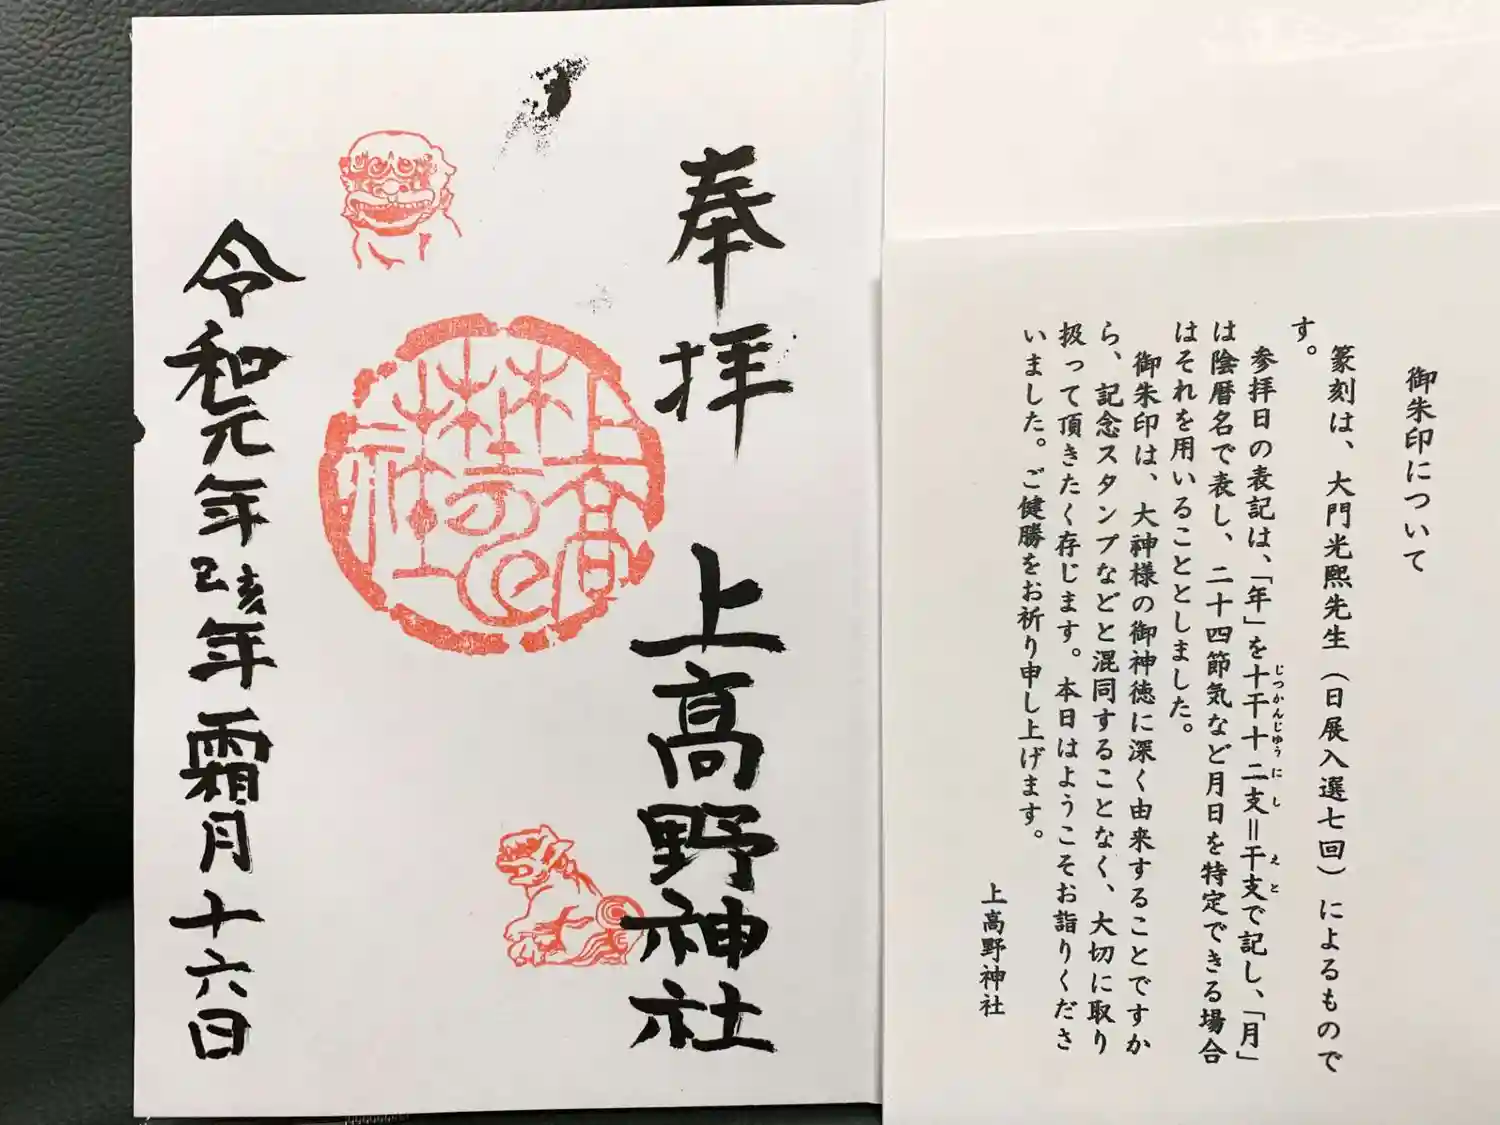 御朱印について
篆刻は、大門光熙先生（日展入選七回）によるもので
す。
参拝日の表記は、「年」を十干十二支＝干支で記し、「月」
じっかんじゅうにし
えと
は陰暦名で表し、二十四節気など月日を特定できる場合
はそれを用いることとしました。
御朱印は、大神様の御神徳に深く由来することですか
ら、記念スタンプなどと混同することなく、大切に取り
扱って頂きたく存じます。本日はようこそお詣りくださ
いました。ご健勝をお祈り申し上げます。
上高野神社
奉拝 上高野神社
令和元年乙亥年霜月十六日